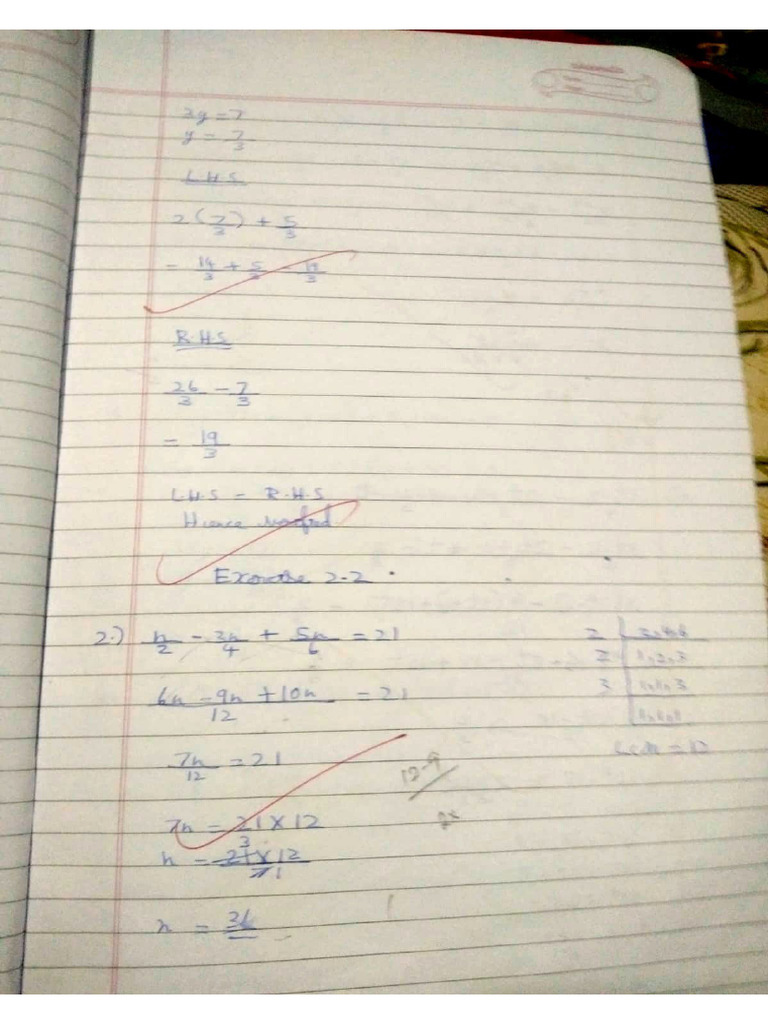 3y = 7
y = 7/3
L.H.S
2(7/3) + 5/3
= 14/3 + 5/3 = 19/3
R.H.S
26/3 - 7/3
= 19/3
L.H.S = R.H.S
Hience
2.2
2.) n/2 - 3n/4 + 5n/6 = 21
6n - 9n + 10n/12 = 21
7n/12 = 21
7n = 21 × 12
n = 21 × 12/7
n = 36
2 | 2, 4, 6
2 | 1, 2, 3
3 | 1, 1, 3
| 1, 1, 1
LCM = 12
12-9